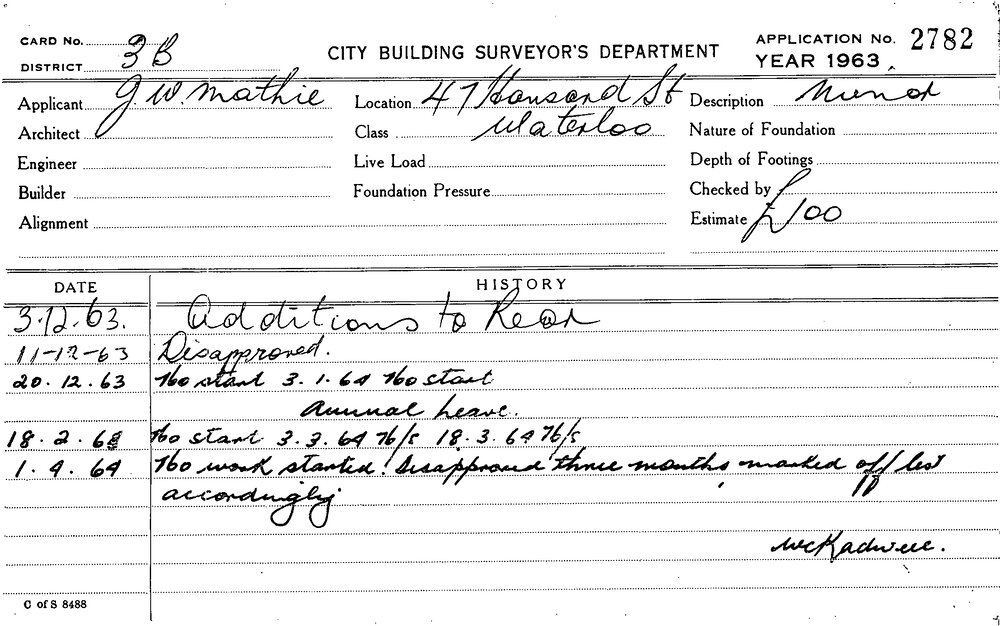 CARD No.
DISTRICT 3B
CITY BUILDING SURVEYOR'S DEPARTMENT
APPLICATION No. 2782
YEAR 1963
Applicant J. W. Mathie
Location 47 Hansard St
Description Minor
Architect
Class Waterloo
Nature of Foundation
Engineer
Live Load
Depth of Footings
Builder
Foundation Pressure
Checked by
Alignment
Estimate £100
DATE HISTORY
3.12.63. Additions to Rear
11-12-63 Disapproved.
20.12.63 No start 3.1.64 No start
Annual Leave.
18.2.64 No start 3.3.64 N/s 18.3.64 N/s
1.4.64 No work started. Disapproved three months marked off list
accordingly
C of S 8488